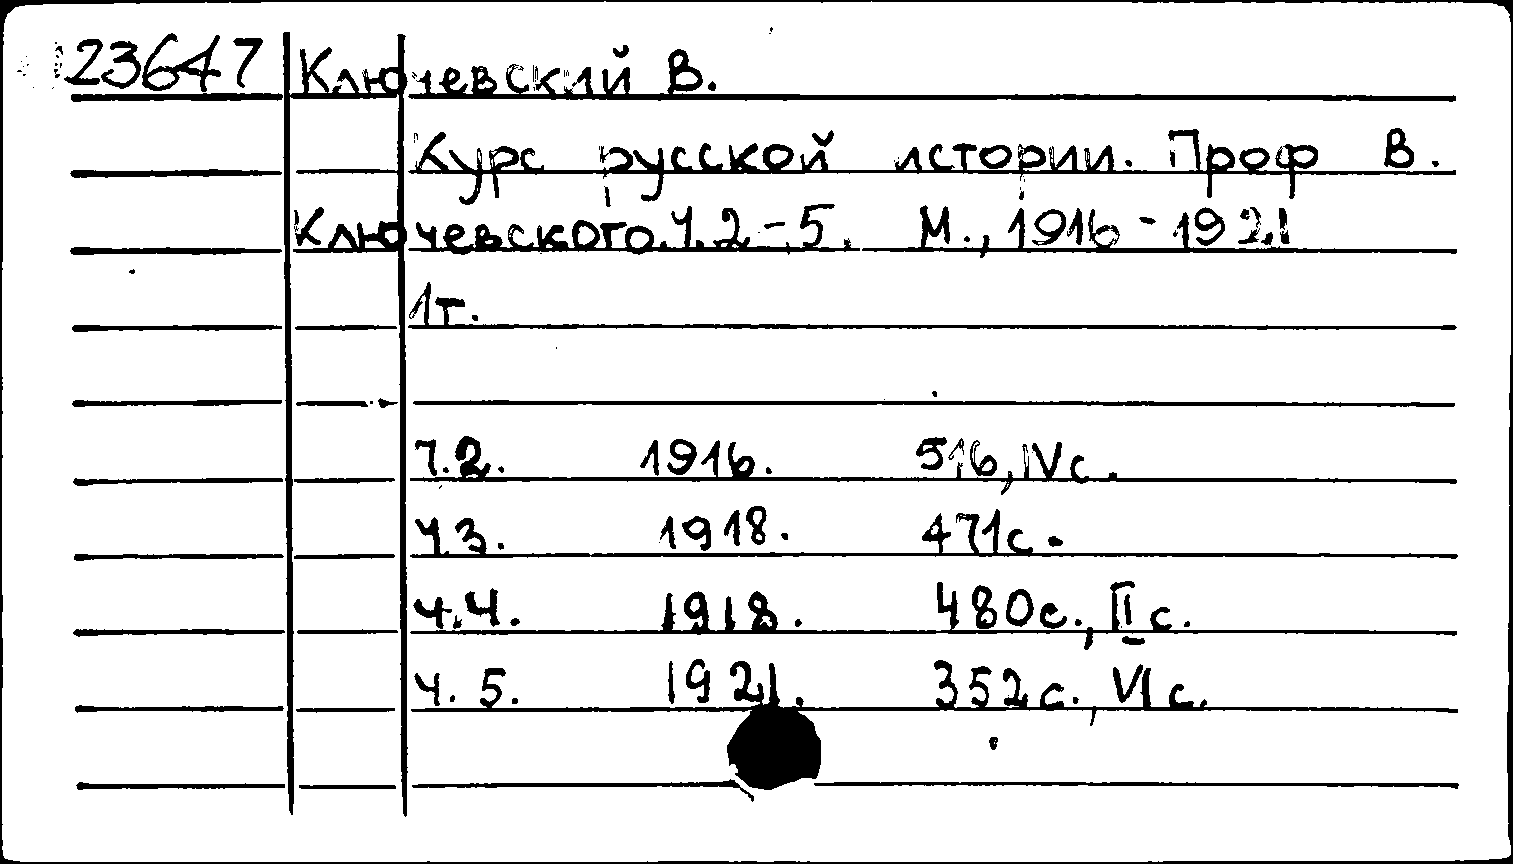 23647 Ключевский В.
Курс русской истории. Проф В.
Ключевского. Ч. 2-5. М., 1916-1921
1т.
Ч.2. 1916. 516, IV с.
Ч.3. 1918. 471с.
Ч.4. 1918. 480с., II с.
Ч. 5. 1921. 352с., VI с.